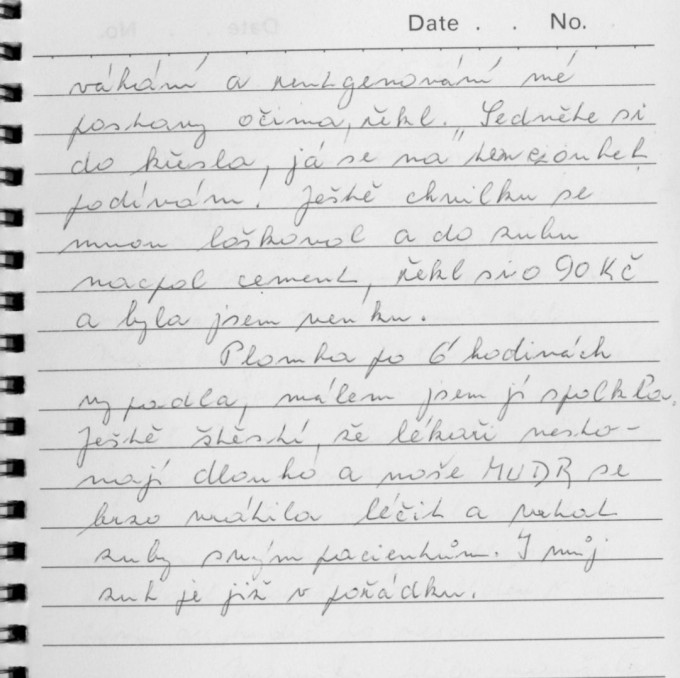 Date . . No.
váhání a rentgenování mé
postavy očima, řekl. "Sedněte si
do křesla, já se na ten zoubek
podívám! Ještě chvilku se
mnou laškoval a do zubu
nacpal cement, řekl si o 90 Kč
a byla jsem venku.
Plomba po 6 hodinách
vypadla, málem jsem jí spolkla.
Ještě štěstí, že lékaři nesto-
nají dlouho a naše MUDR se
brzo vrátila léčit a vrtat
zuby svým pacientům. I můj
zub je již v pořádku.